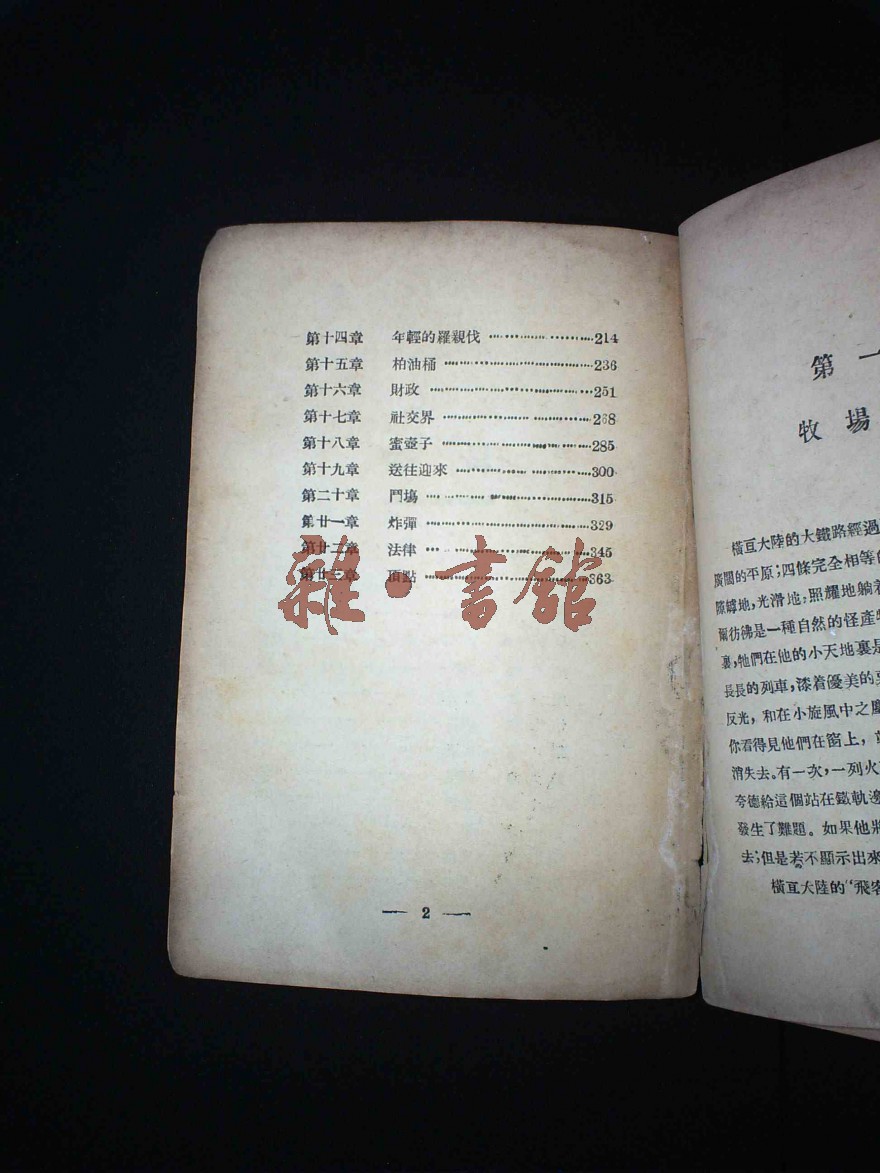 第十四章 年輕的羅親伐 214
第十五章 柏油桶 236
第十六章 財政 251
第十七章 社交界 268
第十八章 蜜壺子 285
第十九章 送往迎來 300
第二十章 鬥塲 315
第廿一章 炸彈 329
第廿二章 法律 345
第廿三章 頂點 363
雜·書館
— 2 —
第一
牧場
橫亙大陸的大鐵路經過
廣闊的平原;四條完全相等
隙罅地,光滑地,照耀地躺着
爾彷彿是一種自然的怪產
裏,牠們在他的小天地裏是
長長的列車,漆着優美的
反光,和在小旋風中之塵
你看得見他們在窗上,
消失去。有一次,一列火
夸德給這個站在鐵軌邊
發生了難題。如果他將
去;但是若不顯示出來
橫亙大陸的“飛